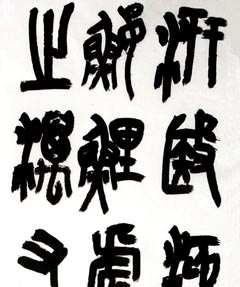 汧殹沔
鰋鯉處
之澫又